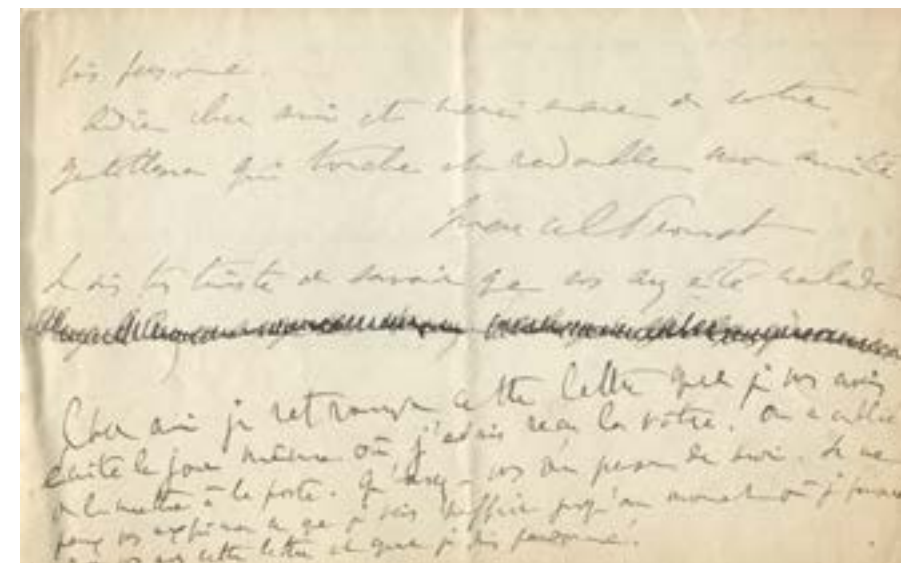 très personnel.
Adieu cher ami et merci encore de votre
gentillesse qui touche et redouble mon amitié
Marcel Proust
Je suis très triste de savoir que vous avez été malade
Cher ami je retrouve cette lettre que je vous avais
écrite le jour même où j'avais reçu la vôtre. On a oublié
de la mettre à la poste. Qu'avez-vous dû penser de moi. Je ne
peux vous exprimer ce que je vais souffrir jusqu'au moment où je saurai
que vous avez cette lettre et que je suis pardonné.